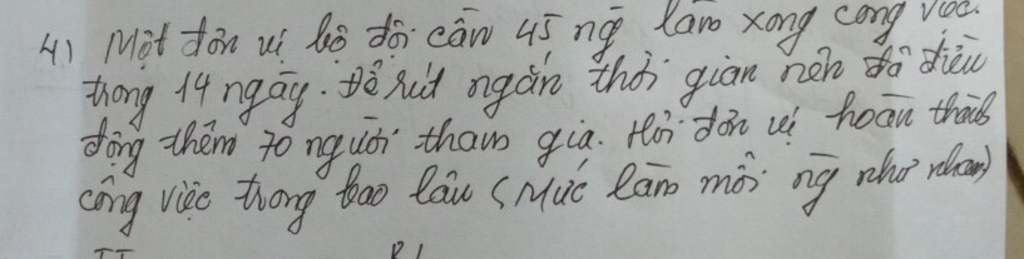 4) Một đơn vị bộ đội cần 45 ng̃ làm xong công việc.
trong 14 ngày. Để rút ngắn thời gian nên đã điều
động thêm 70 người tham gia. Hỏi đơn vị hoàn thành
công việc trong bao lâu (Mức làm mỗi ng̃ như nhau)